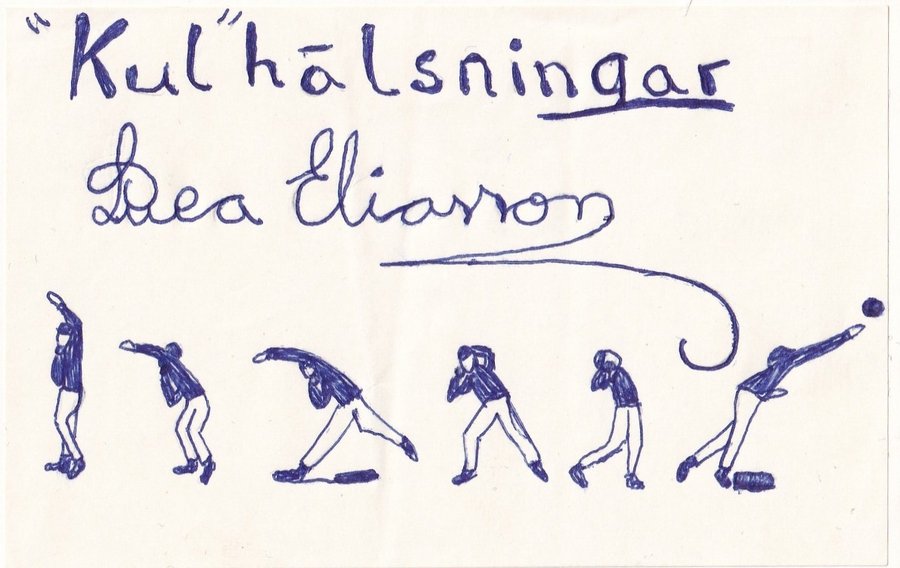 "Kul"hälsningar
Svea Eliasson